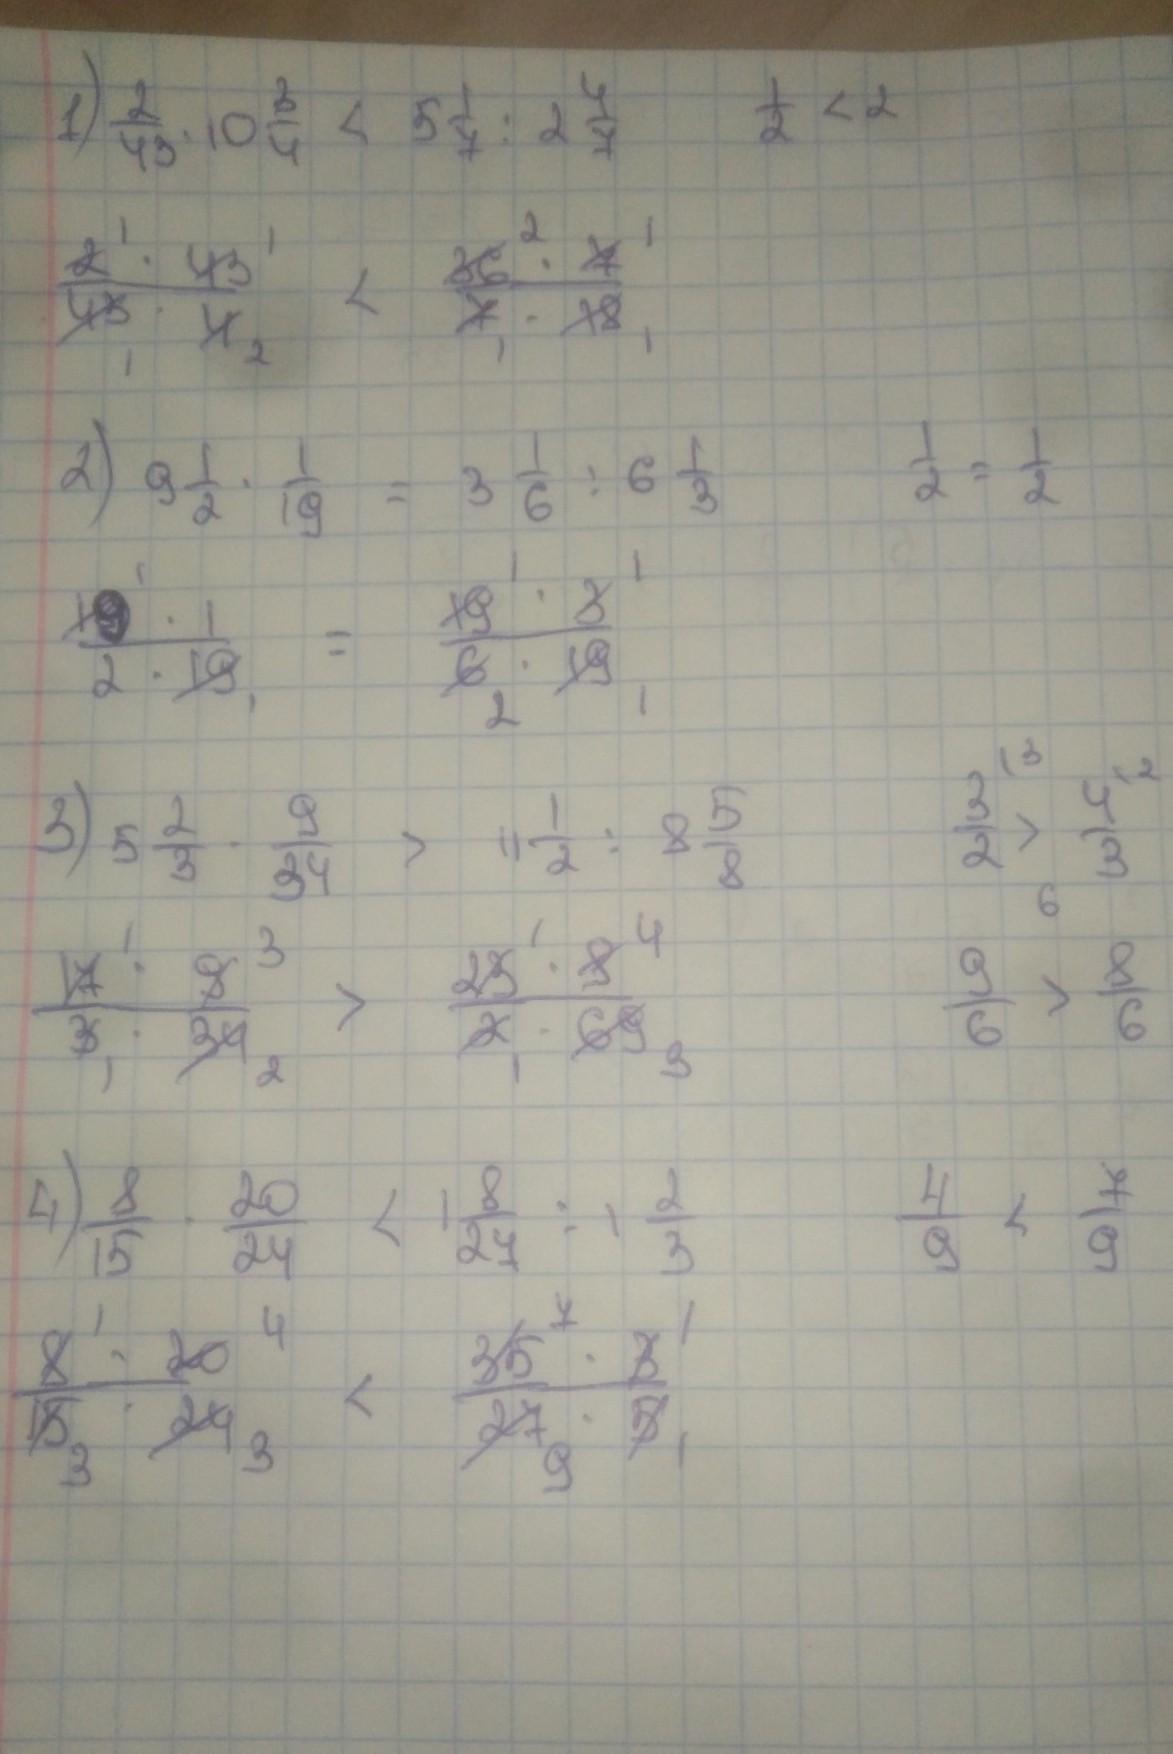 1) 2/43 · 10 3/4 < 5 1/7 : 2 4/7 1/2 < 2
2¹ · 43¹ / 43₁ · 4₂ < 36² · 7¹ / 7₁ · 18₁
2) 9 1/2 · 1/19 = 3 1/6 : 6 1/3 1/2 = 1/2
19¹ · 1 / 2 · 19₁ = 19¹ · 3¹ / 6₂ · 19₁
3) 5 2/3 · 9/34 > 11 1/2 : 8 5/8 3/2 ⁽³ > 4/3 ⁽² 6
17¹ · 9³ / 3₁ · 34₂ > 23¹ · 8⁴ / 2₁ · 69₃ 9/6 > 8/6
4) 8/15 · 20/24 < 1 8/27 : 1 2/3 4/9 < 7/9
8¹ · 20⁴ / 15₃ · 24₃ < 35⁷ · 3¹ / 27₉ · 5₁